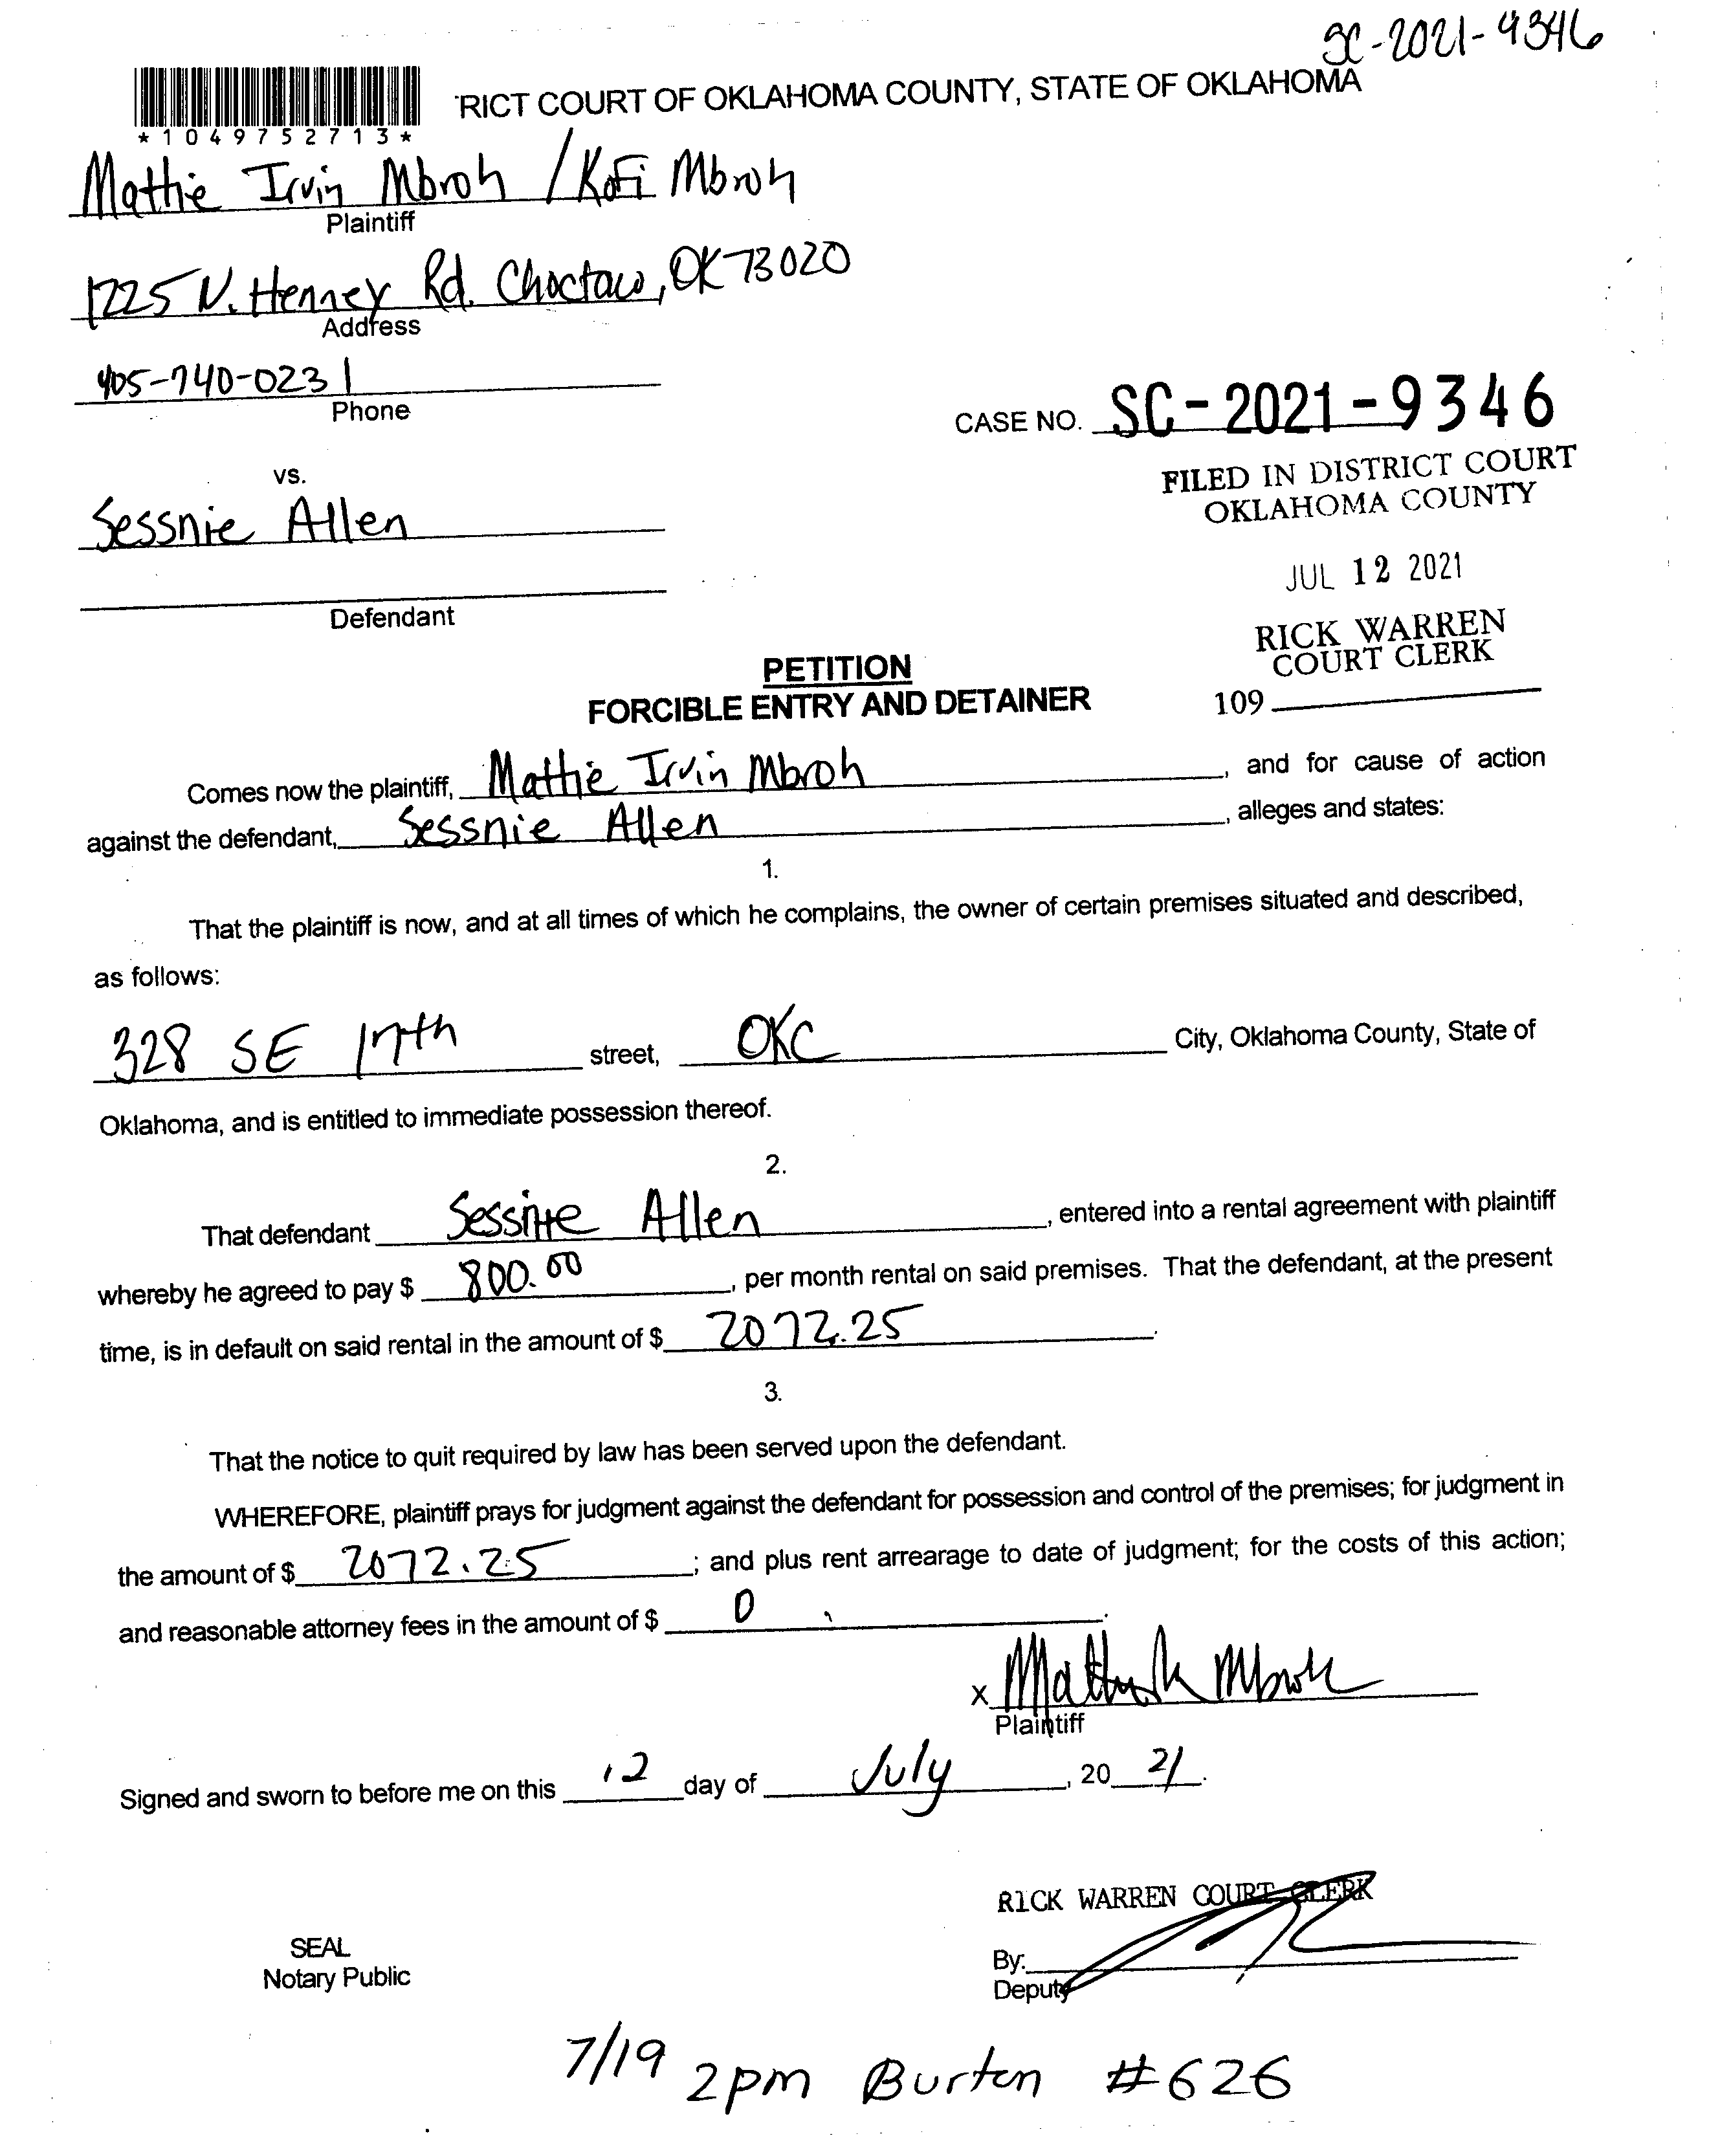 SC-2021-9346
RICT COURT OF OKLAHOMA COUNTY, STATE OF OKLAHOMA
*1049752713*
Mattie Irvin Mbroh / Kofi Mbroh
Plaintiff
1225 N. Henney Rd. Choctaw, OK 73020
Address
405-740-0231
Phone
CASE NO. SC-2021-9346
FILED IN DISTRICT COURT
OKLAHOMA COUNTY
vs.
Sessnie Allen
JUL 12 2021
Defendant
RICK WARREN
COURT CLERK
109
PETITION
FORCIBLE ENTRY AND DETAINER
Comes now the plaintiff, Mattie Irvin Mbroh, and for cause of action
against the defendant, Sessnie Allen, alleges and states:
1.
That the plaintiff is now, and at all times of which he complains, the owner of certain premises situated and described,
as follows:
328 SE 17th street, OKC City, Oklahoma County, State of
Oklahoma, and is entitled to immediate possession thereof.
2.
That defendant Sessnie Allen, entered into a rental agreement with plaintiff
whereby he agreed to pay $ 800.00, per month rental on said premises. That the defendant, at the present
time, is in default on said rental in the amount of $ 2072.25.
3.
That the notice to quit required by law has been served upon the defendant.
WHEREFORE, plaintiff prays for judgment against the defendant for possession and control of the premises; for judgment in
the amount of $ 2072.25; and plus rent arrearage to date of judgment; for the costs of this action;
and reasonable attorney fees in the amount of $ 0.
x
Plaintiff
Signed and sworn to before me on this 12 day of July, 20 21.
RICK WARREN COURT CLERK
SEAL
Notary Public
By:
Deputy
7/19 2pm Burton #626